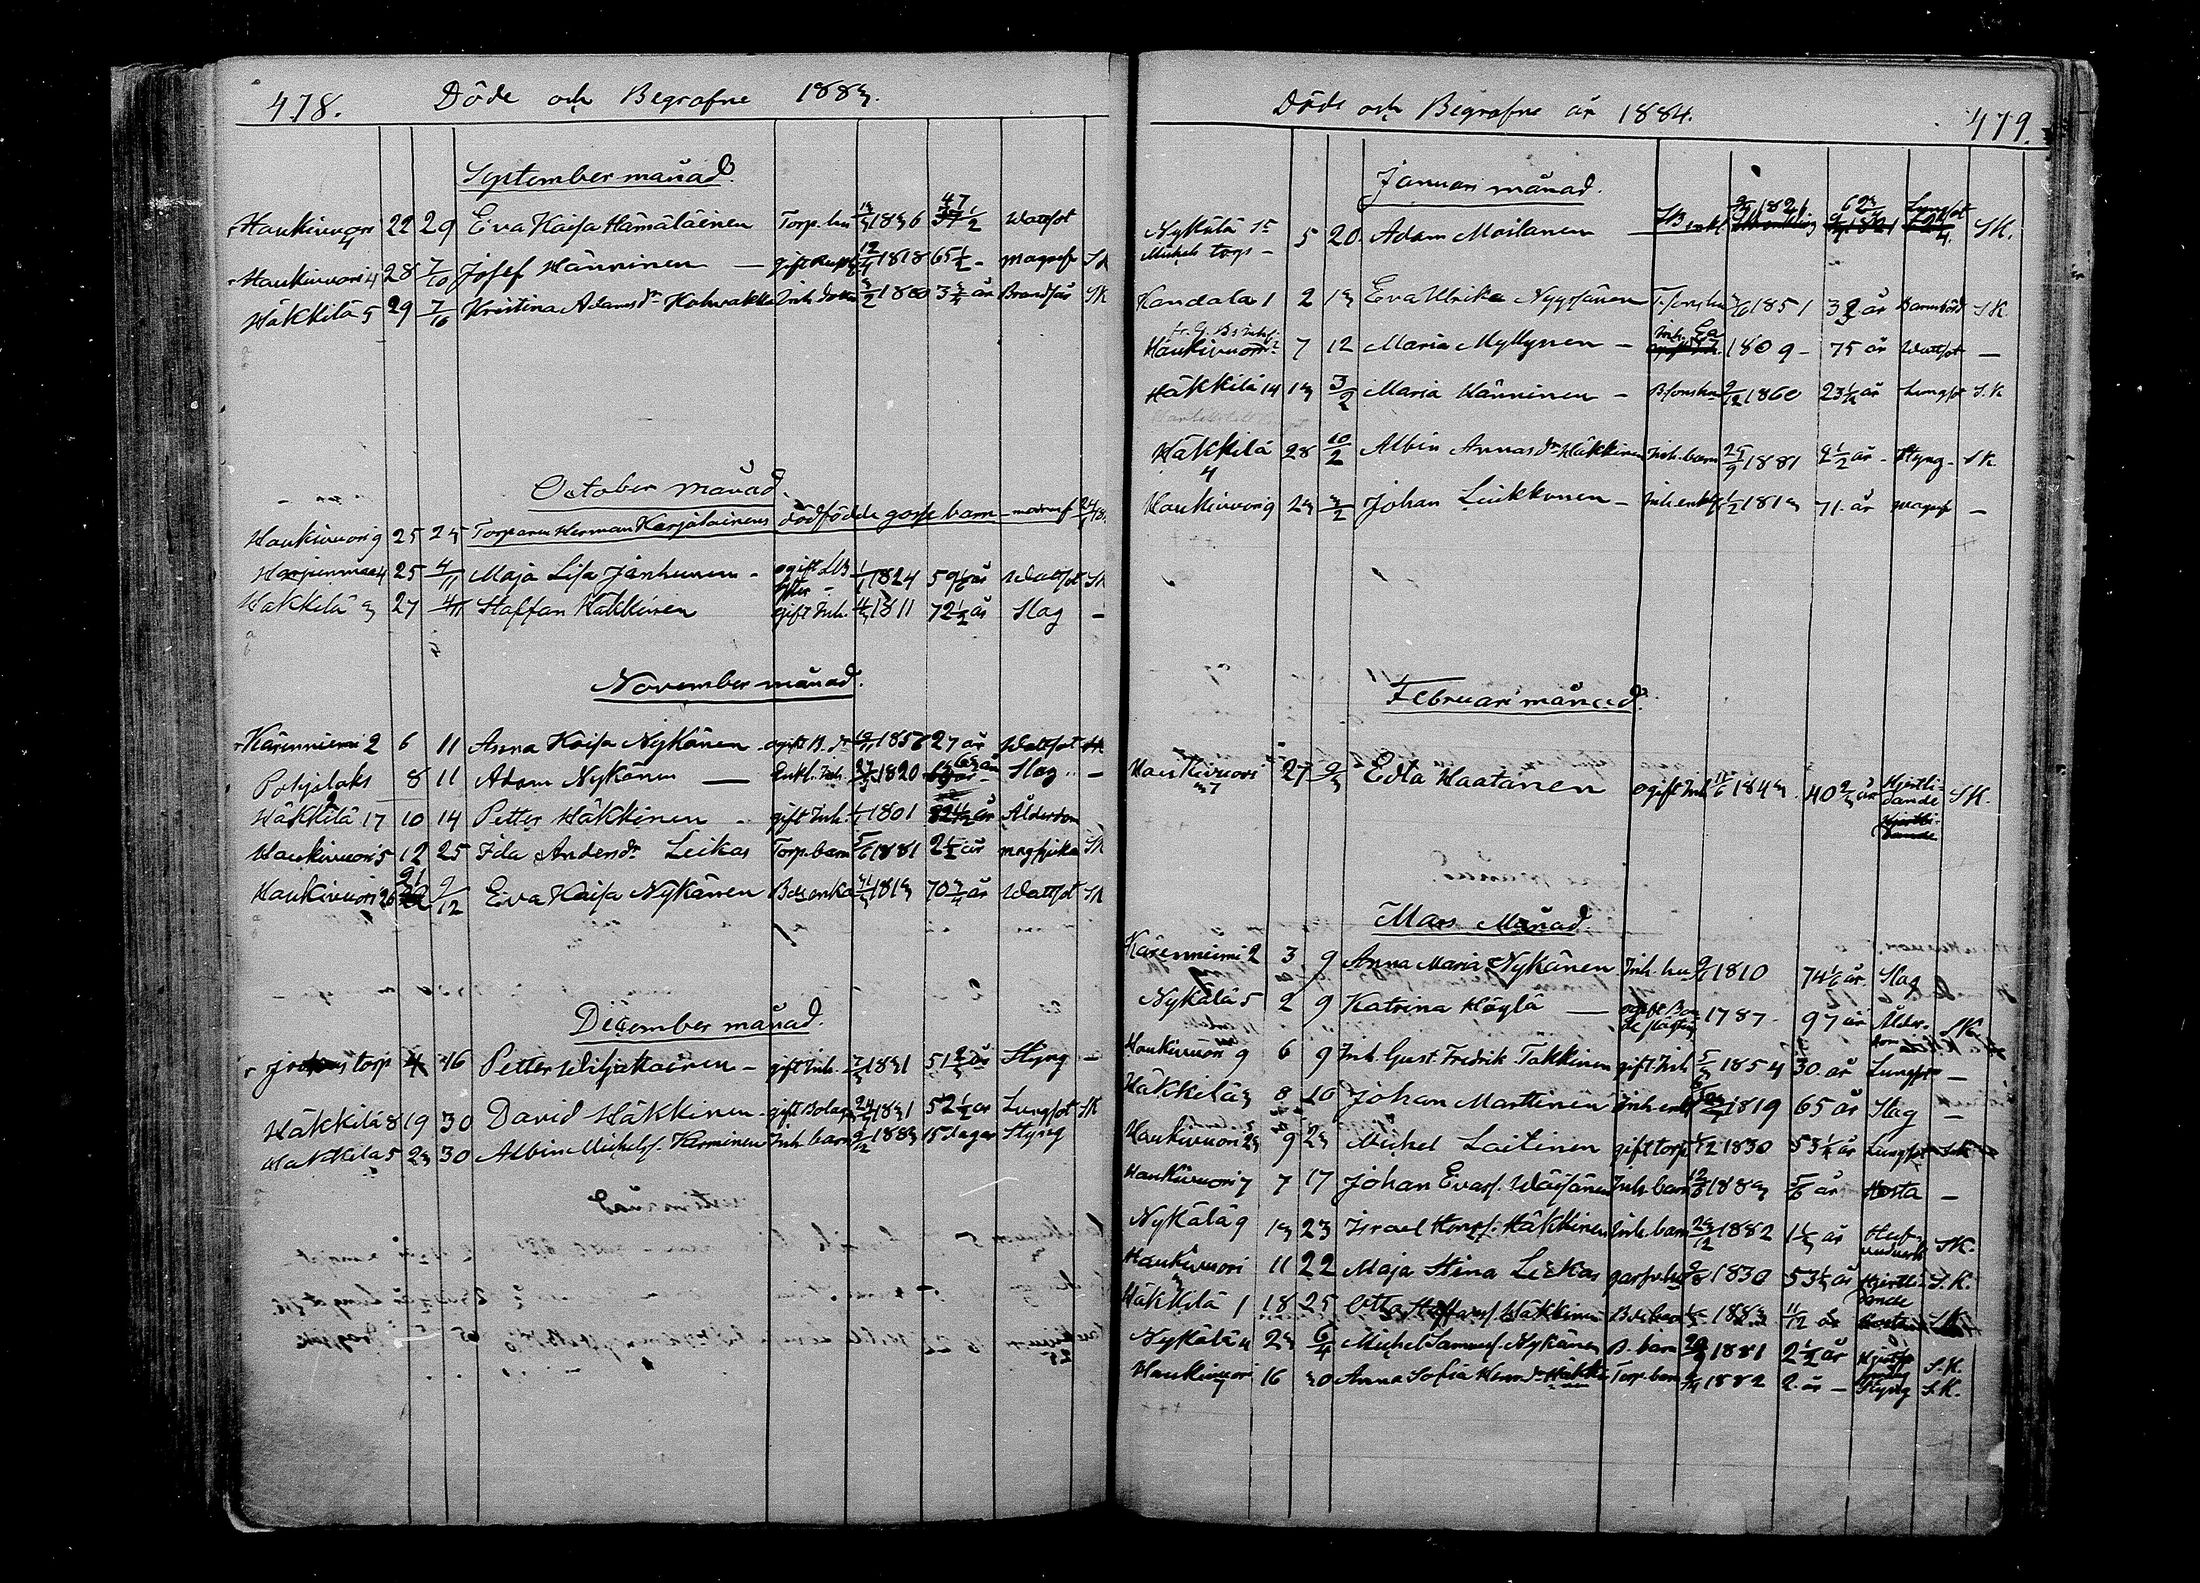 478. Döde och Begrafne 1883.
September månad.
Haukivuori 4 22 29 Eva Kaisa Hämäläinen Torp. hu 1836 47 37 1/2 Wattsot
Haukivuori 4 28 7/10 Josef Hänninen — gift 12/4 1818 65 1/2 - magref SK
Häkkilä 5 29 7/10 Kristina Adamsdr Kohvakka Inh. dotter 3/2 1880 3 3/4 år Brandsår SK
October månad.
Haukivuori 9 25 25 Torparen Herman Karjalainens dödfödde gosse barn
Harjunmaa 4 25 4/11 Maja Lisa Janhunen - ogift 1/1 1824 59 1/6 år Wattsot SK
Häkkilä 3 27 4/11 Staffan Häkkinen gift Inh. 4/3 1811 72 1/2 år Slag -
November månad.
Kärenniemi 2 6 11 Anna Kaisa Nykänen ogift B. dr 1856 27 år Wattsot SK
Pohjaloks 8 11 Adam Nykänen — Enkl. Inh. 27/3 1820 63 år Slag -
Häkkilä 17 10 14 Petter Häkkinen - gift Inh. 1/1 1801 82 1/2 år Ålderdom
Haukivuori 5 12 25 Ida Andersdr Leikas Torp. barn 5/6 1881 2 1/2 år magsjuka SK
Haukivuori 26 21 9/12 Eva Kaisa Nykänen Bdeenka 1813 70 3/4 år Wattsot SK
December månad.
torp 4 16 Petter Wiljakainen - gift Inh. 7/3 1831 51 2/3 år Styng -
Häkkilä 8 19 30 David Häkkinen gift Bolagm 24/7 1831 52 1/2 år Lungsot SK
Häkkilä 5 23 30 Albin Michelss. Kerminen Inh. barn 9/12 1883 15 dagar Styng
Döde och Begrafne år 1884. 479.
Januari månad.
Nykälä 1 5 20. Adam Moilanen 1821 62 Lungsot SK.
Michels torp -
Kandala 1 2 13 Eva Ulrika Nyyssönen T. sonshu 1851 32 år Barnsbörd SK
Haukivuori 2 7 12 Maria Myllynen - 1809 - 75 år Wattsot —
Häkkilä 14 13 3/2 Maria Hänninen - B. sonshu 9/12 1860 23 1/4 år Lungsot S.K
Häkkilä 4 28 10/2 Albin Annasdr Häkkinen Inh. barn 25/9 1881 2 1/2 år - Styng - SK
Haukivuori 9 23 3/2 Johan Liukkonen - Inh. enkl. 1/2 1813 71 år magref -
Februari månad.
Haukivuori 37 27 9/3 Edla Haatanen ogift Inh. 11/6 1843 40 2/3 år Hjertlidande SK.
Mars Månad.
Kärenniemi 2 3 9 Anna Maria Nykänen Inh. hu 9/1 1810 74 1/6 år. Slag
Nykälä 5 2 9 Katrina Höglä — ogift 1787 - 97 år Ålderdom SK
Haukivuori 9 6 9 Inh. Gust. Fredrik Takkinen gift Inh 5/3 1854 30 år Lungsot —
Häkkilä 3 8 10 Johan Marttinen Inh. enkl 1819 65 år Slag —
Haukivuori 23 9 23 Michel Laitinen gift torp 1/12 1830 53 1/4 år Lungsot SK
Haukivuori 7 7 17 Johan Evass. Wäisänen Inh. barn 12/6 1883 5/6 år Hosta —
Nykälä 9 13 23 Israel Häkkinen Inh. barn 23/12 1882 1 1/3 år Hufvudverk SK.
Haukivuori 11 22 Maja Stina Leikas 9/8 1830 53 1/2 år Hjertlidande S.K.
Häkkilä 1 18 25 Otto Staffanss. Häkkinen Bde barn 1883 11/12 år SK
Nykälä 4 23 6/4 Michel Samuelss. Nykänen B. barn 1881 2 1/2 år S.K.
Haukivuori 7 16 30 Anna Sofia Hermdr Häkkinen Torp. barn 1882 2 år — Styng S.K.